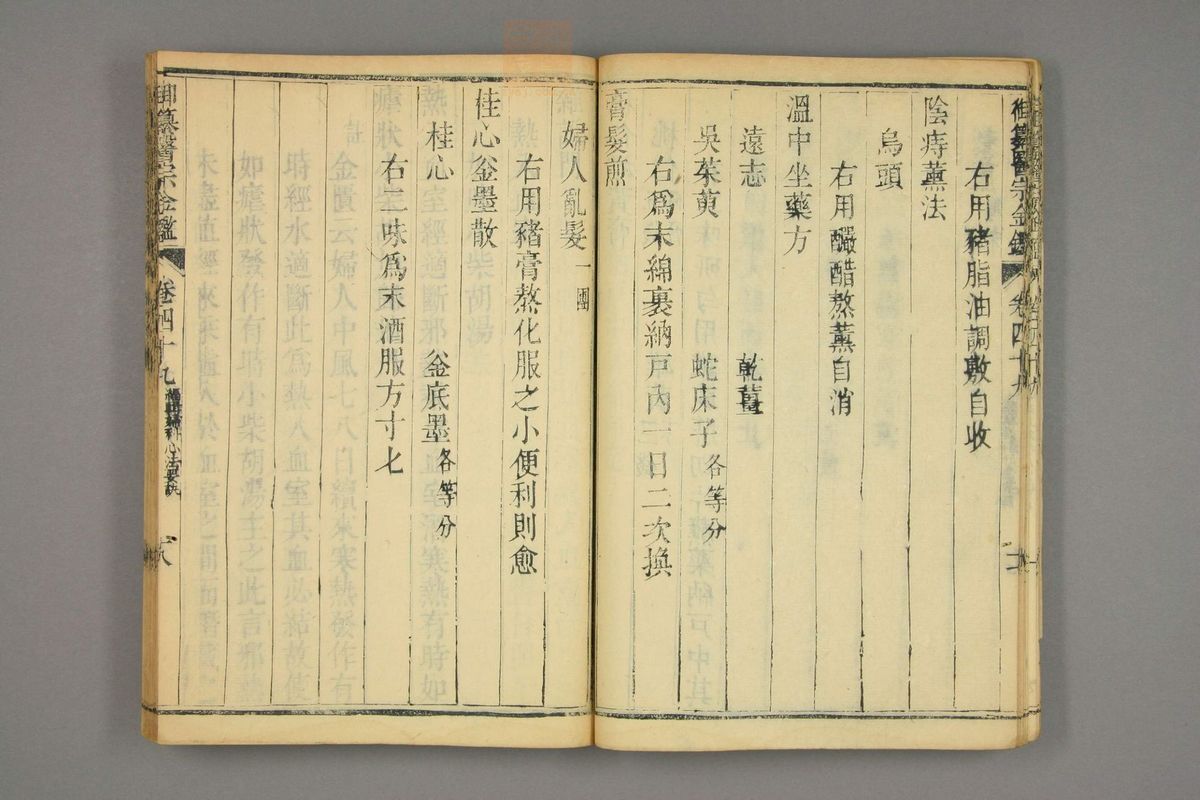 御纂醫宗金鑑 卷四十九
右用豬脂油調敷自收
陰痔薰法
烏頭
右用釅醋熬薰自消
溫中坐藥方
遠志 乾薑
吳茱萸 蛇床子各等分
右爲末綿裹納戸內一日二次換
膏髮煎
婦人亂髮一團
右用豬膏熬化服之小便利則愈
桂心釜墨散
桂心 釜底墨各等分
右二味爲末酒服方寸匕
御纂醫宗金鑑 卷四十九 編輯婦科心法要訣